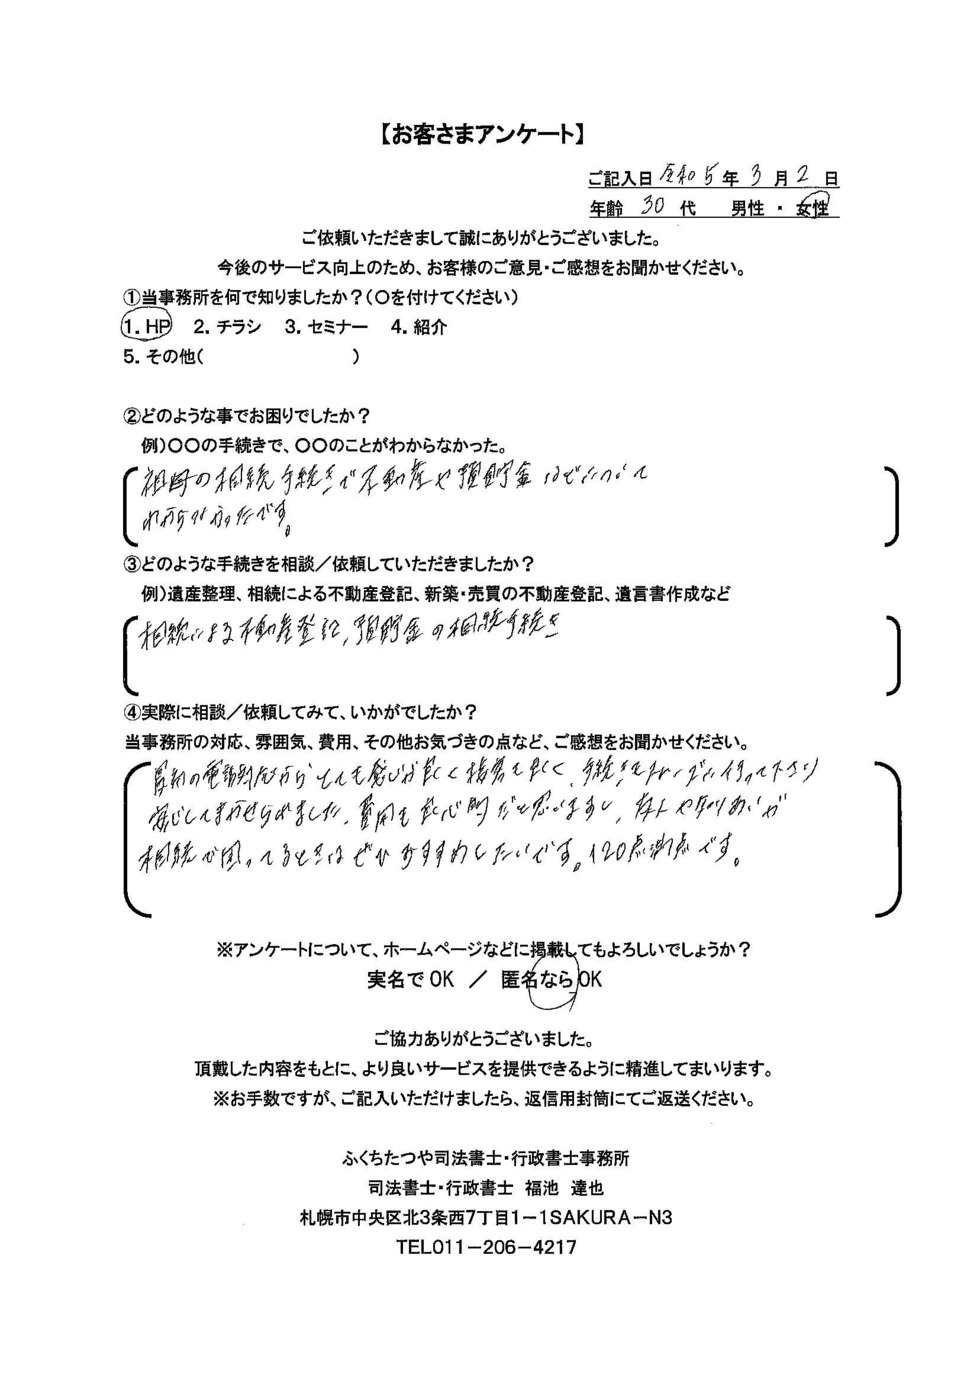 【お客さまアンケート】
ご記入日 令和5年 3月 2日
年齢 30 代 男性 ・ 女性
ご依頼いただきまして誠にありがとうございました。
今後のサービス向上のため、お客様のご意見・ご感想をお聞かせください。
①当事務所を何で知りましたか?(○を付けてください)
1.HP 2.チラシ 3.セミナー 4.紹介
5.その他( )
②どのような事でお困りでしたか?
例)○○の手続きで、○○のことがわからなかった。
祖母の相続手続きで不動産や預貯金などについて
わからなかったです。
③どのような手続きを相談/依頼していただきましたか?
例)遺産整理、相続による不動産登記、新築・売買の不動産登記、遺言書作成など
相続による不動産登記、預貯金の相続手続き
④実際に相談/依頼してみて、いかがでしたか?
当事務所の対応、雰囲気、費用、その他お気づきの点など、ご感想をお聞かせください。
最初の電話対応からとても感じが良く接客も良く、手続きもスムーズに行って下さり
安心してまかせられました。費用も良心的だと思いますし、友人や知りあいが
相続で困ってるときはぜひおすすめしたいです。120点満点です。
※アンケートについて、ホームページなどに掲載してもよろしいでしょうか?
実名でOK / 匿名ならOK
ご協力ありがとうございました。
頂戴した内容をもとに、より良いサービスを提供できるように精進してまいります。
※お手数ですが、ご記入いただけましたら、返信用封筒にてご返送ください。
ふくちたつや司法書士・行政書士事務所
司法書士・行政書士 福池 達也
札幌市中央区北3条西7丁目1-1SAKURA-N3
TEL011-206-4217